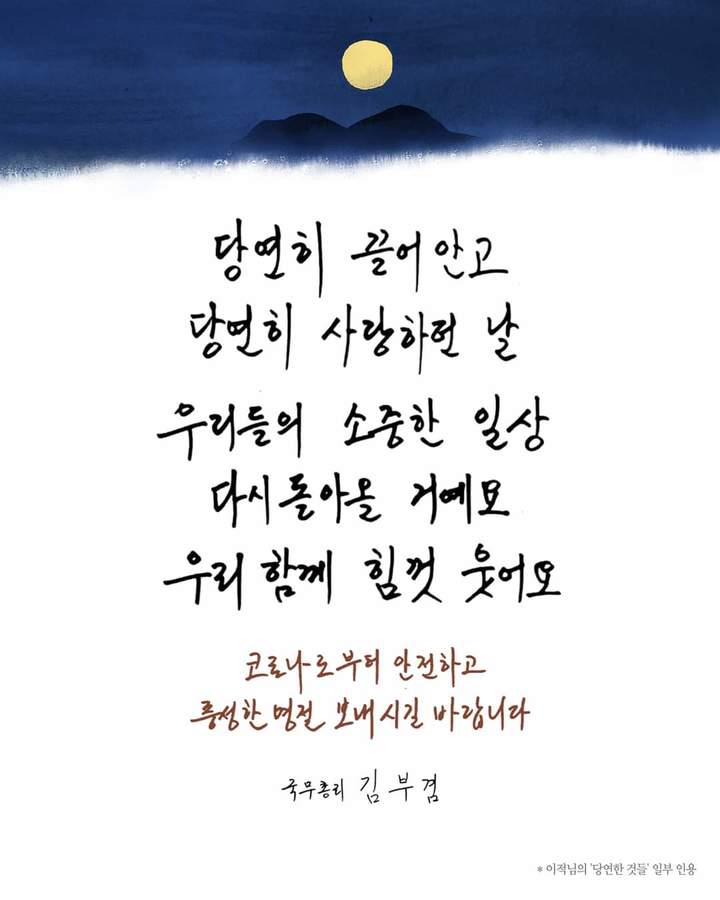 당연히 끌어안고
당연히 사랑하던 날
우리들의 소중한 일상
다시 돌아올 거예요
우리 함께 힘껏 웃어요
코로나로부터 안전하고
풍성한 명절 보내시길 바랍니다
국무총리 김부겸
* 이적님의 '당연한 것들' 일부 인용